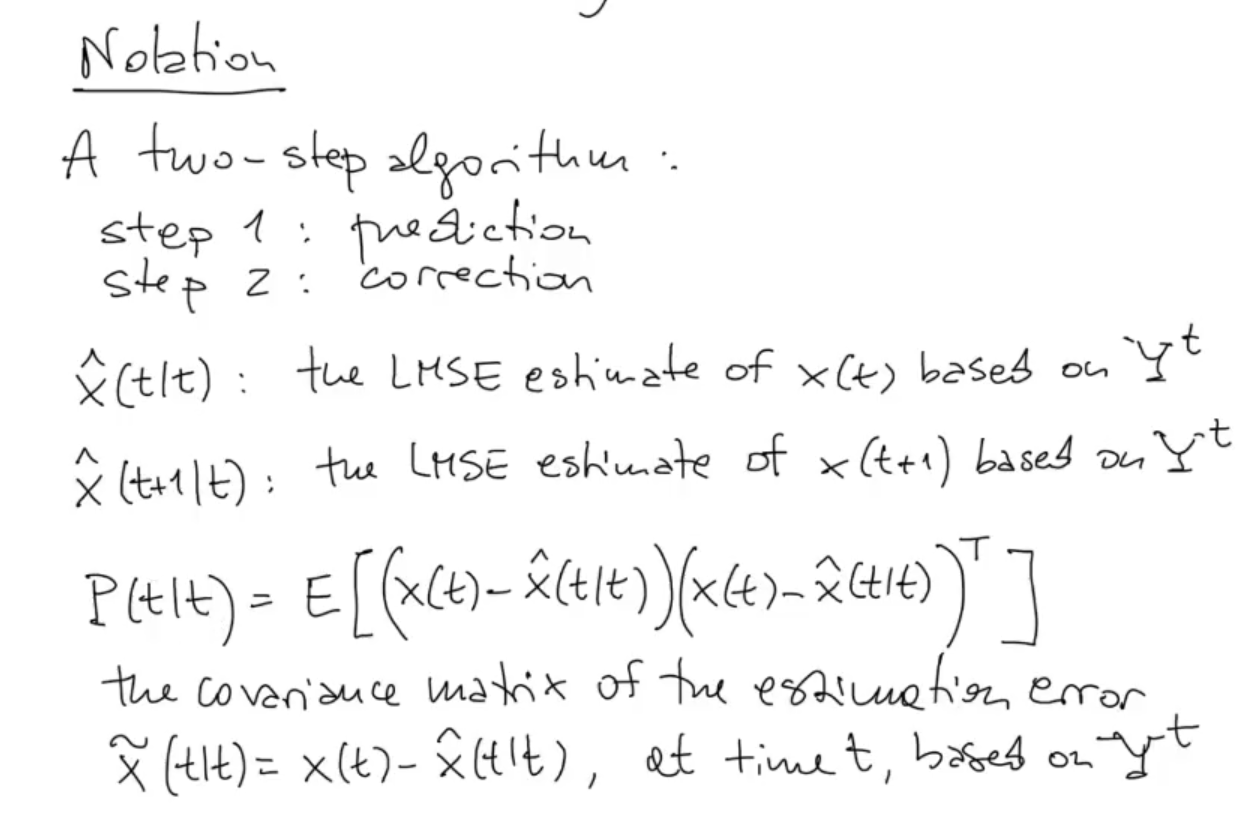 Notation
A two-step algorithm :
step 1 : prediction
step 2 : correction
x̂(t|t) : the LMSE estimate of x(t) based on Yᵗ
x̂(t+1|t) : the LMSE estimate of x(t+1) based on Yᵗ
P(t|t) = E[(x(t)-x̂(t|t))(x(t)-x̂(t|t))ᵀ]
the covariance matrix of the estimation error
x̃(t|t) = x(t)-x̂(t|t), at time t, based on Yᵗ